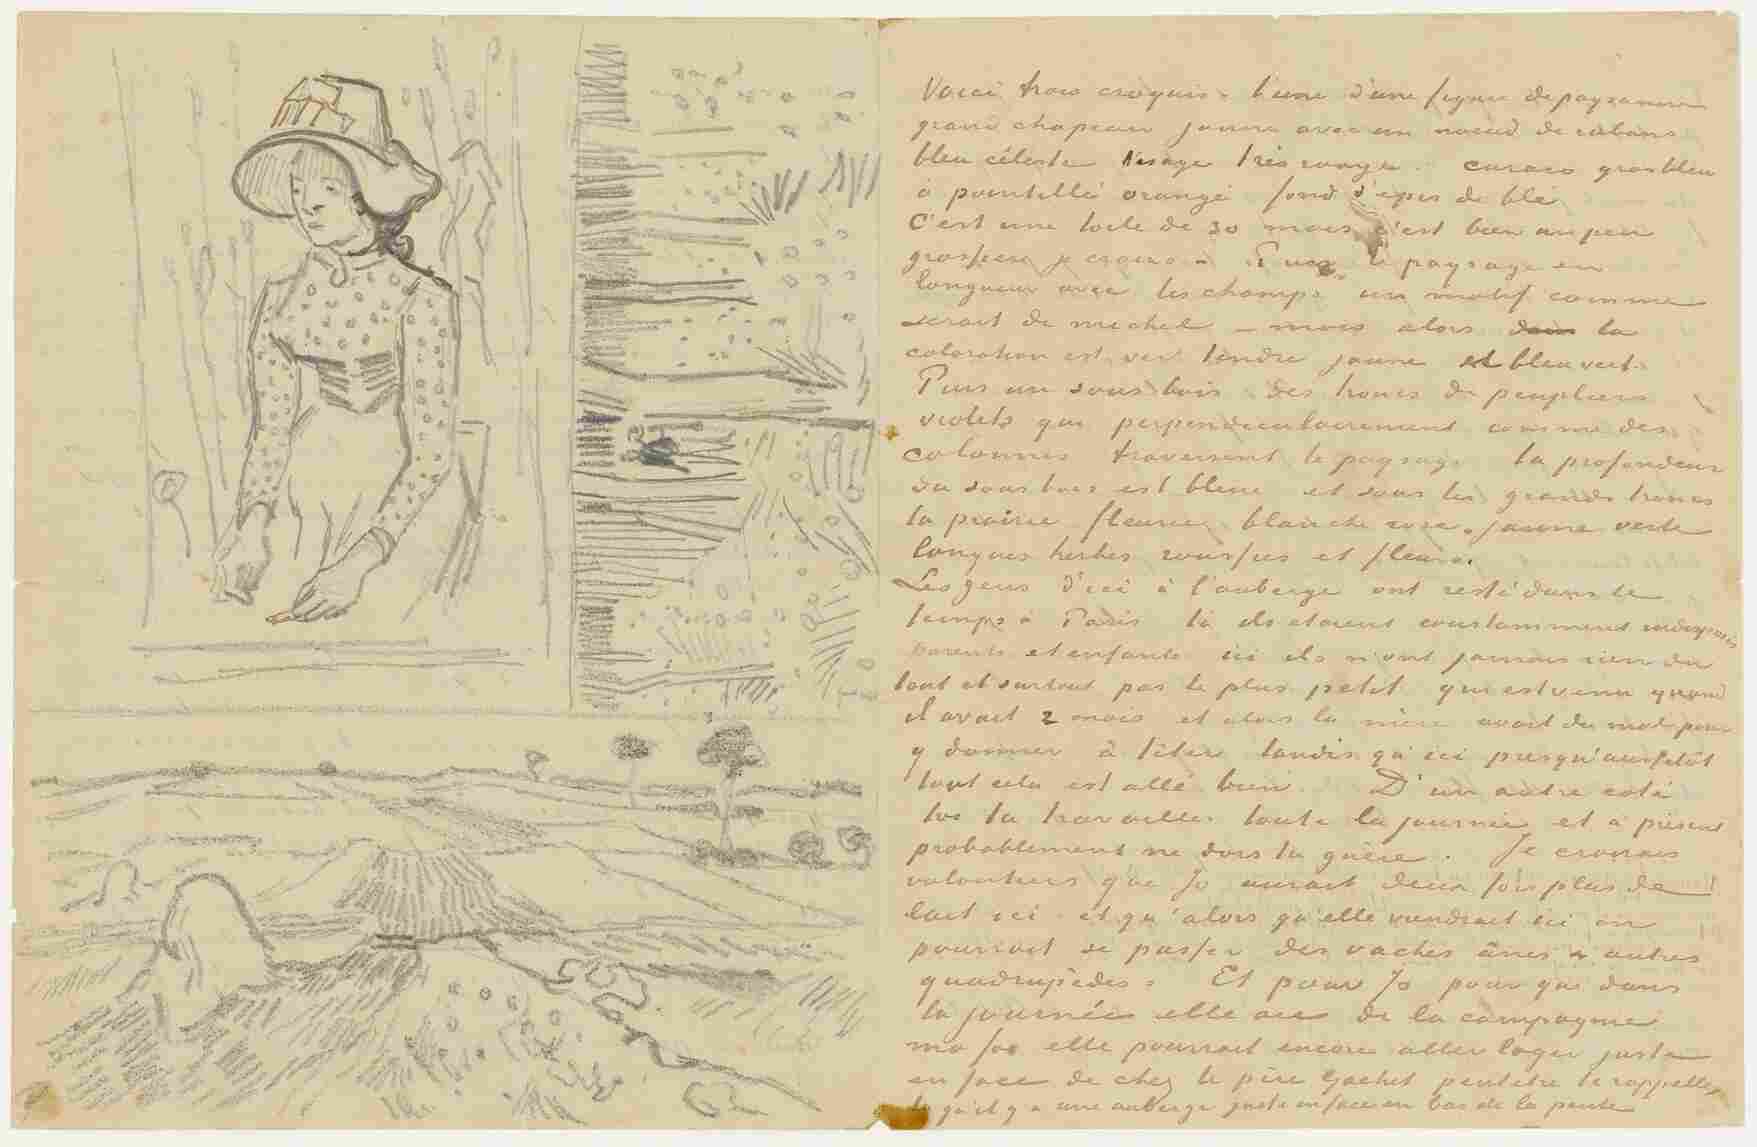 Voici trois croquis – l'une d'une figure de paysanne
grand chapeau jaune avec un noeud de rubans
bleu céleste visage très rouge. caraco gros bleu
à pointillé orangé fond d'épis de blé
C'est une toile de 30 mais c'est bien un peu
grossier je crains – Puis le paysage en
longueur avec les champs un motif comme
serait de michel – mais alors la
coloration est vert tendre jaune et bleu vert.
Puis un sous bois des troncs de peupliers
violets qui perpendiculairement comme des
colonnes traversent le paysage la profondeur
du sous bois est bleue et sous les grands troncs
la prairie fleurie blanche rose jaune verte
longues herbes roussies et fleurs.
Les gens d'ici à l'auberge ont resté dans le
temps à Paris là ils étaient constamment indisposés
parents et enfants ici ils n'ont jamais rien du
tout et surtout pas le plus petit qui est venu quand
il avait 2 mois et alors la mère avait du mal pour
y donner à têter tandis qu'ici presqu'aussitôt
tout cela est allé bien. D'un autre coté
toi tu travailles toute la journée et à présent
probablement ne dors tu guère. Je croirais
volontiers que Jo aurait deux fois plus de
lait ici et qu'alors qu'elle viendrait ici on
pourrait se passer des vaches ânes & autres
quadrupèdes. Et pour Jo pour que dans
la journée elle aie de la compagnie
ma foi elle pourrait encore aller loger juste
en face de chez le père Gachet peutetre te rappelles
tu qu'il y a une auberge juste en face en bas de la pente